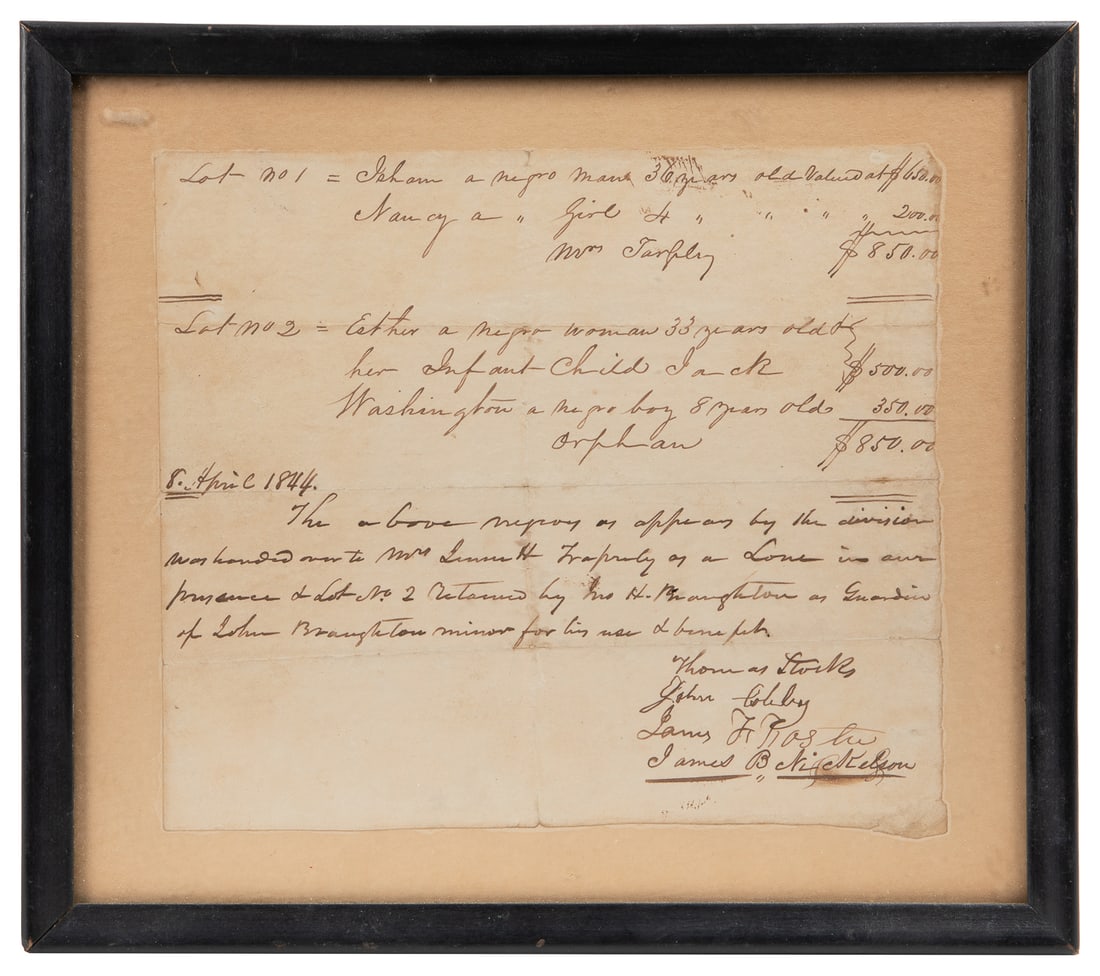 Lot no 1 = Isham a negro man 36 years old Valued at $650.00
Nancy a " Girl 4 " " " " 200.00
Mrs Tarpley $850.00
Lot no 2 = Esther a negro woman 33 years old &
her Infant Child Jack $500.00
Washington a negro boy 8 years old 350.00
Orphan $850.00
8. April 1844.
The above negroes as appears by the division
was handed over to Mrs Tarpely as a Lone in our
presence & Lot No. 2 retained by Jno H. Braughton as Guardin
of John Braughton minor for his use & benefit.
Thomas Stocks
John Colby
James F
James B Nickelson